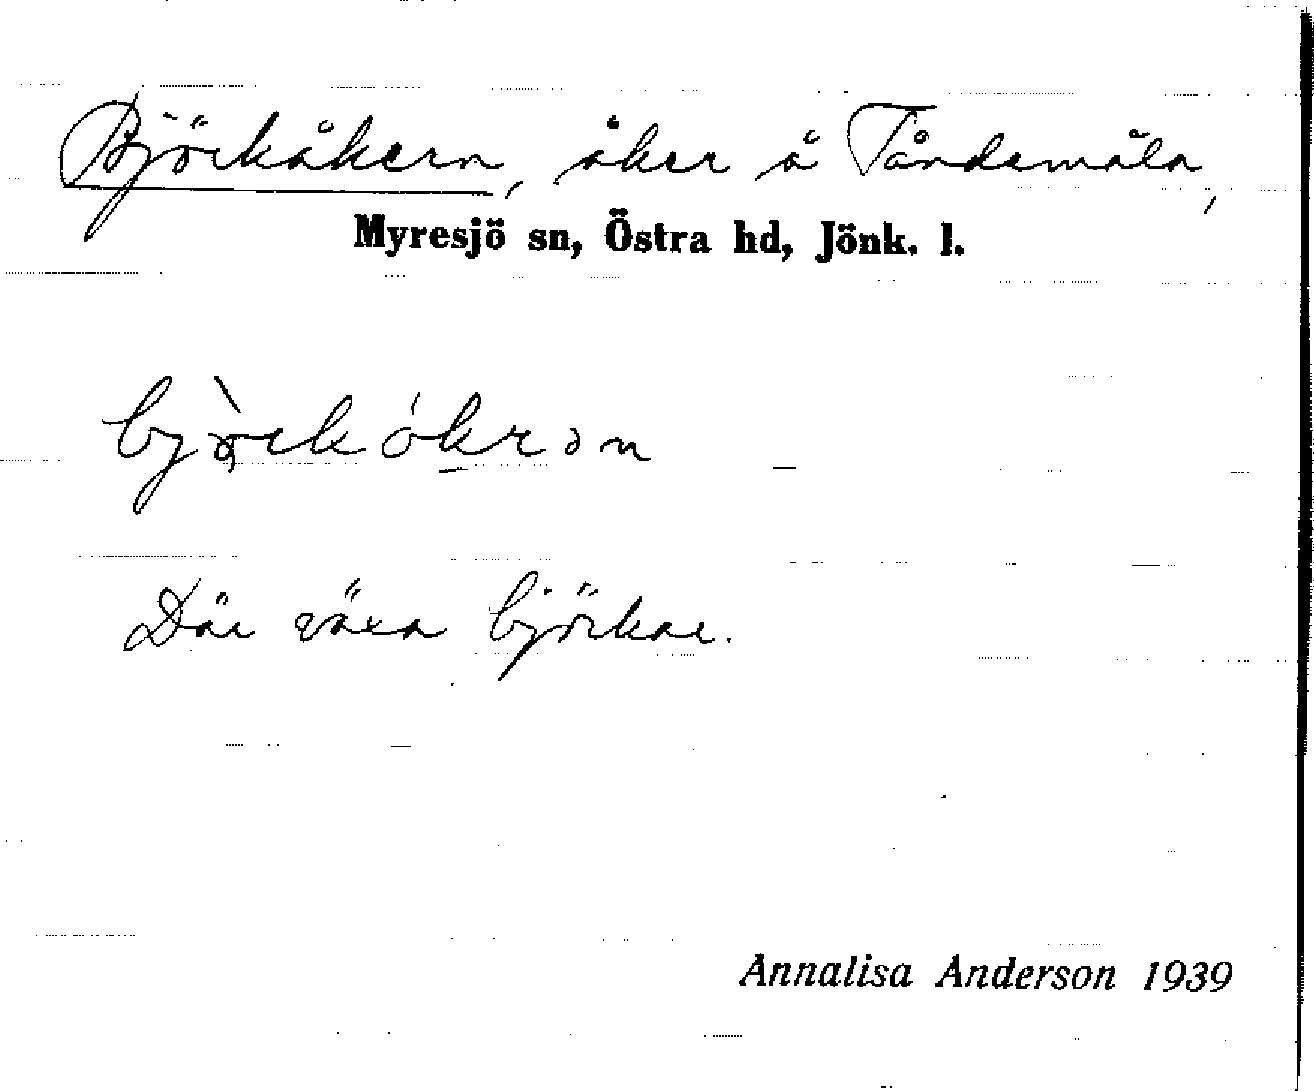 Björkåkern, åker å Tåndamåla,
Myresjö sn, Östra hd, Jönk. l.
Där växa björkar.
Annalisa Anderson 1939